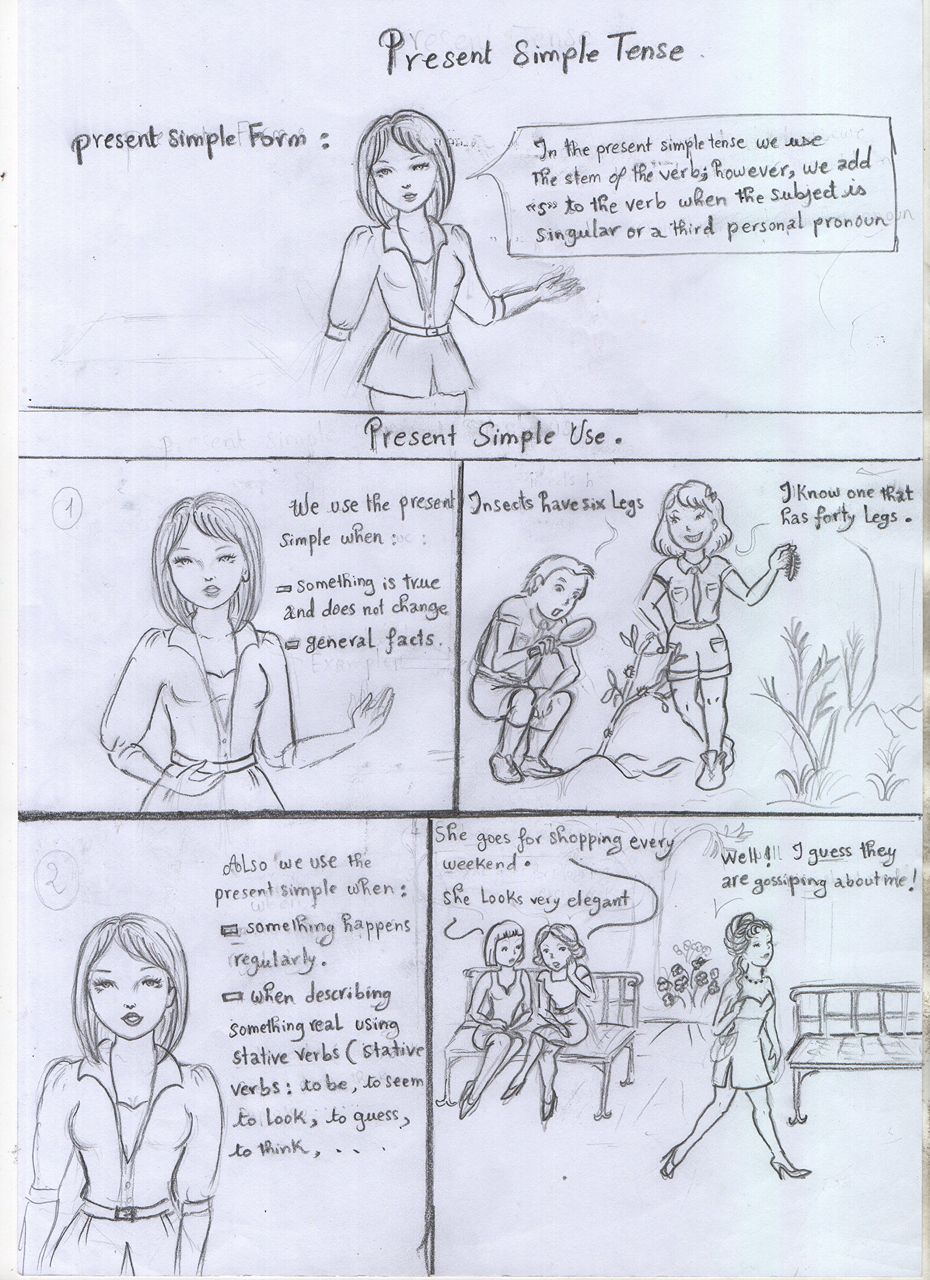 Present Simple Tense.
present simple Form :
In the present simple tense we use
The stem of the verb; however, we add
"s" to the verb when the subject is
singular or a third personal pronoun
Present Simple Use.
1
We use the present
simple when :
something is true
and does not change
general facts.
Insects have six Legs
I Know one that
has forty Legs.
2
Also we use the
present simple when:
something happens
regularly.
when describing
something real using
stative verbs (stative
verbs: to be, to seem
to look, to guess,
to think, . . .
She goes for shopping every
weekend.
She Looks very elegant
Well!!! I guess they
are gossiping about me!